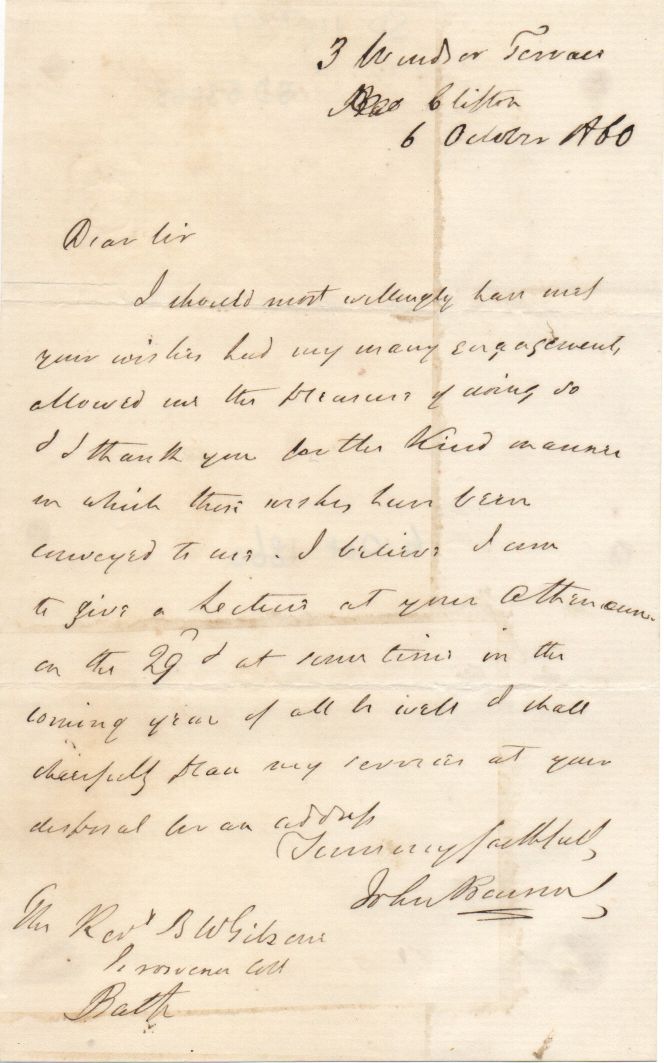 3 Windsor Terrace
Clifton
6 October 1860
Dear Sir
I should most willingly have met
your wishes had my many engagements
allowed me the pleasure of doing so
& I thank you for the kind manner
in which those wishes have been
conveyed to me. I believe I am
to give a Lecture at your Athenaeum
on the 29 & at some time in the
coming year if all be well I shall
cheerfully place my services at your
disposal for an address
Yours very faithfully
John
The Revd B W Gibsone
Grosvenor Coll
Bath